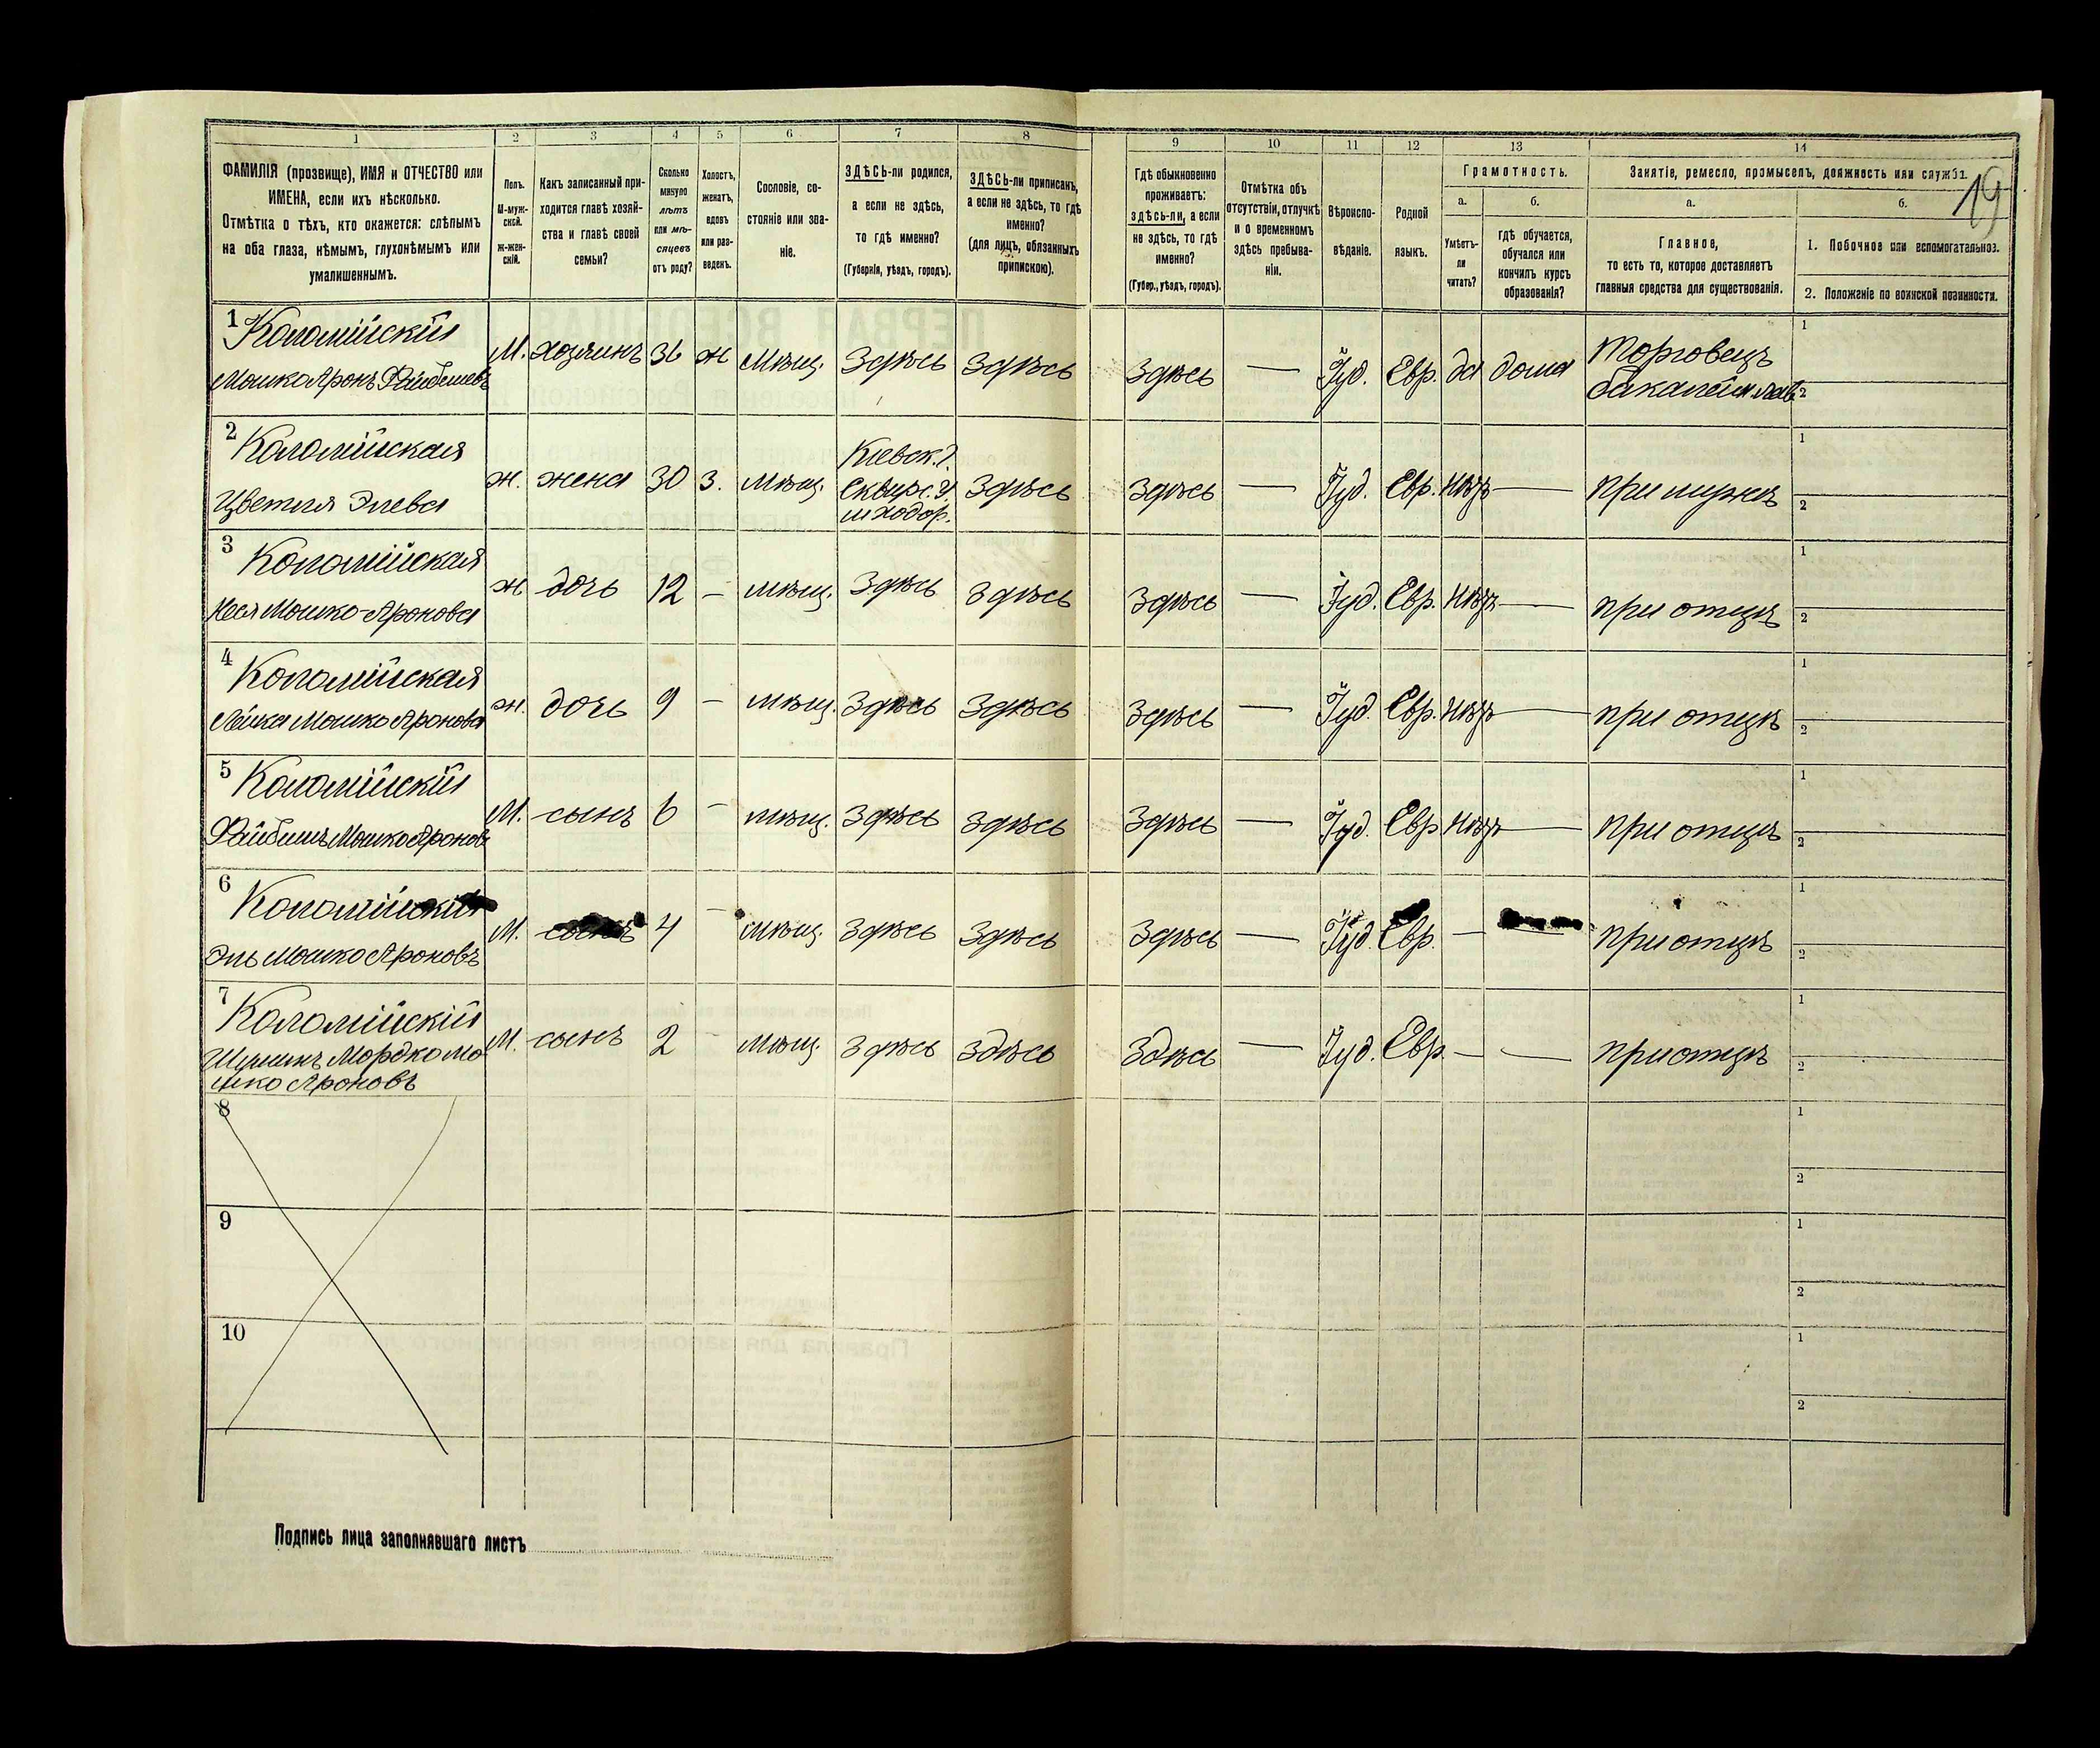 1 2 3 4 5 6 7 8 9 10 11 12 13 14
19
ФАМИЛІЯ (прозвище), ИМЯ и ОТЧЕСТВО или
ИМЕНА, если ихъ нѣсколько.
Отмѣтка о тѣхъ, кто окажется: слѣпымъ
на оба глаза, нѣмымъ, глухонѣмымъ или
умалишеннымъ.
Полъ.
М-муж-
ской.
Ж-жен-
скій.
Какъ записанный при-
ходится главѣ хозяй-
ства и главѣ своей
семьи?
Сколько
минуло
лѣтъ
или мѣ-
сяцевъ
отъ роду?
Холостъ,
женатъ,
вдовъ
или раз-
веденъ.
Сословіе, со-
стояніе или зва-
ніе.
ЗДѢСЬ-ли родился,
а если не здѣсь,
то гдѣ именно?
(Губернія, уѣздъ, городъ).
ЗДѢСЬ-ли приписанъ,
а если не здѣсь, то гдѣ
именно?
(для лицъ, обязанныхъ
припискою).
Гдѣ обыкновенно
проживаетъ:
здѣсь-ли, а если
не здѣсь, то гдѣ
именно?
(Губер., уѣздъ, городъ).
Отмѣтка объ
отсутствіи, отлучкѣ
и о временномъ
здѣсь пребыва-
ніи.
Вѣроиспо-
вѣданіе.
Родной
языкъ.
Грамотность.
а.
Умѣетъ-
ли
читать?
б.
гдѣ обучается,
обучался или
кончилъ курсъ
образованія?
Занятіе, ремесло, промыселъ, должность или служба.
а.
Главное,
то есть то, которое доставляетъ
главныя средства для существованія.
б.
1. Побочное или вспомогательное.
2. Положеніе по воинской повинности.
1 Коломійскій
Мошко Аронъ Файбишевъ
М. хозяинъ 36 ж Мѣщ. Здѣсь Здѣсь Здѣсь — Іуд. Евр. да дома
Торговецъ
бакалейн. лав.
1
2
2 Коломійская
Цветля Элева
ж. жена 30 З. мѣщ.
Кіевск. г.
Сквирс. у.
м Ходор.
Здѣсь Здѣсь — Іуд. Евр. нѣтъ — при мужѣ
1
2
3 Коломійская
Мошко-Аронова
ж дочь 12 — мѣщ. Здѣсь Здѣсь Здѣсь — Іуд. Евр. нѣтъ — при отцѣ
1
2
4 Коломійская
Лейка Мошко Аронова
ж. дочь 9 — мѣщ. Здѣсь Здѣсь Здѣсь — Іуд. Евр. нѣтъ — при отцѣ
1
2
5 Коломійскій
Файбишъ Мошко Ароновъ
М. сынъ 6 — мѣщ. Здѣсь Здѣсь Здѣсь — Іуд. Евр нѣтъ — при отцѣ
1
2
6 Коломійскій
Эль Мошко Ароновъ
М. сынъ 4 — мѣщ. Здѣсь Здѣсь Здѣсь — Іуд. Евр. — — при отцѣ
1
2
7 Коломійскій
Мордко Мо
шко Ароновъ
М. сынъ 2 — мѣщ. Здѣсь Здѣсь Здѣсь — Іуд. Евр. — — при отцѣ
1
2
8
1
2
9
1
2
10
1
2
Подпись лица заполнявшаго листъ